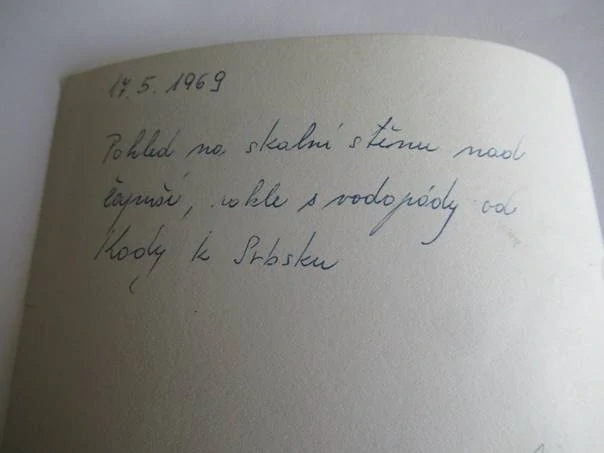 17.5.1969
Pohled na skalní stěnu nad
s vodopády od
Kody k Srbsku